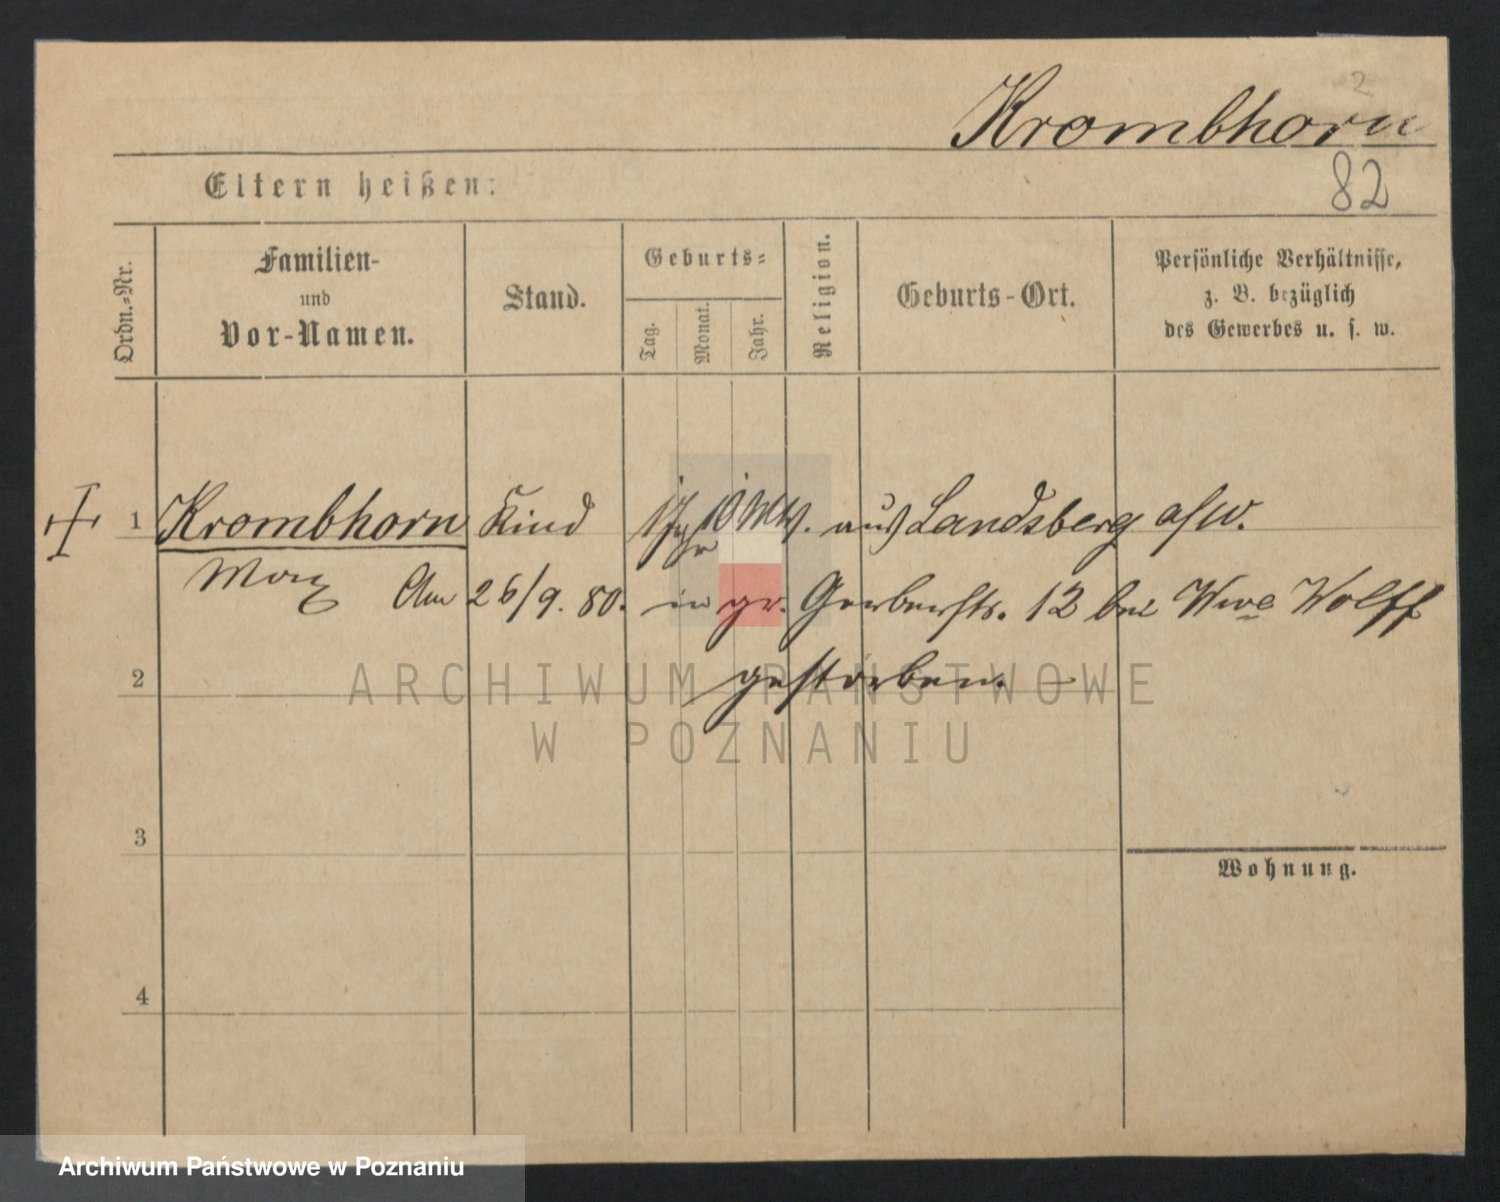 2
Krombhorn
82
Eltern heißen:
Ordn.=Nr.
Familien-
und
Vor-Namen.
Stand.
Geburts=
Tag.
Monat.
Jahr.
Religion.
Geburts-Ort.
Persönliche Verhältnisse,
z. B. bezüglich
des Gewerbes u. s. w.
1 Krombhorn Kind 1 Jahr 10 Mt. aus Landsberg a/W.
Max Am 26/9. 80. in gr. Gerberstr. 12 bei Wwe Wolff
gestorben.
2
ARCHIWUM PAŃSTWOWE
W POZNANIU
3
Wohnung.
4
Archiwum Państwowe w Poznaniu